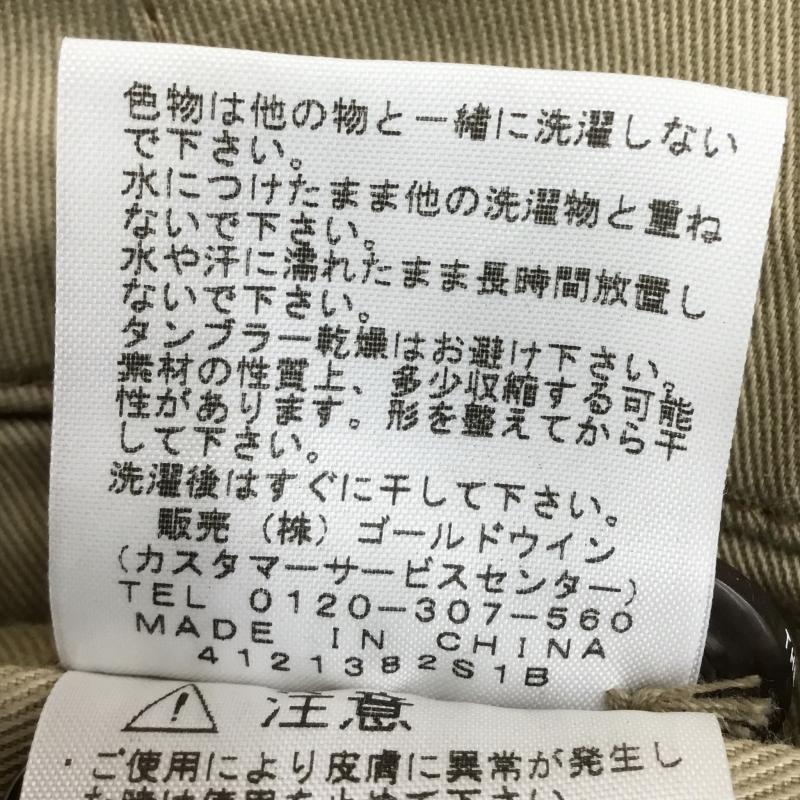 色物は他の物と一緒に洗濯しない
で下さい。
水につけたまま他の洗濯物と重ね
ないで下さい。
水や汗に濡れたまま長時間放置し
ないで下さい。
タンブラー乾燥はお避け下さい。
素材の性質上、多少収縮する可能
性があります。形を整えてから干
して下さい。
洗濯後はすぐに干して下さい。
販売 (株) ゴールドウイン
(カスタマーサービスセンター)
TEL 0120-307-560
MADE IN CHINA
4121382S1B
注意
・ご使用により皮膚に異常が発生し
た時は使用を止めて下さい